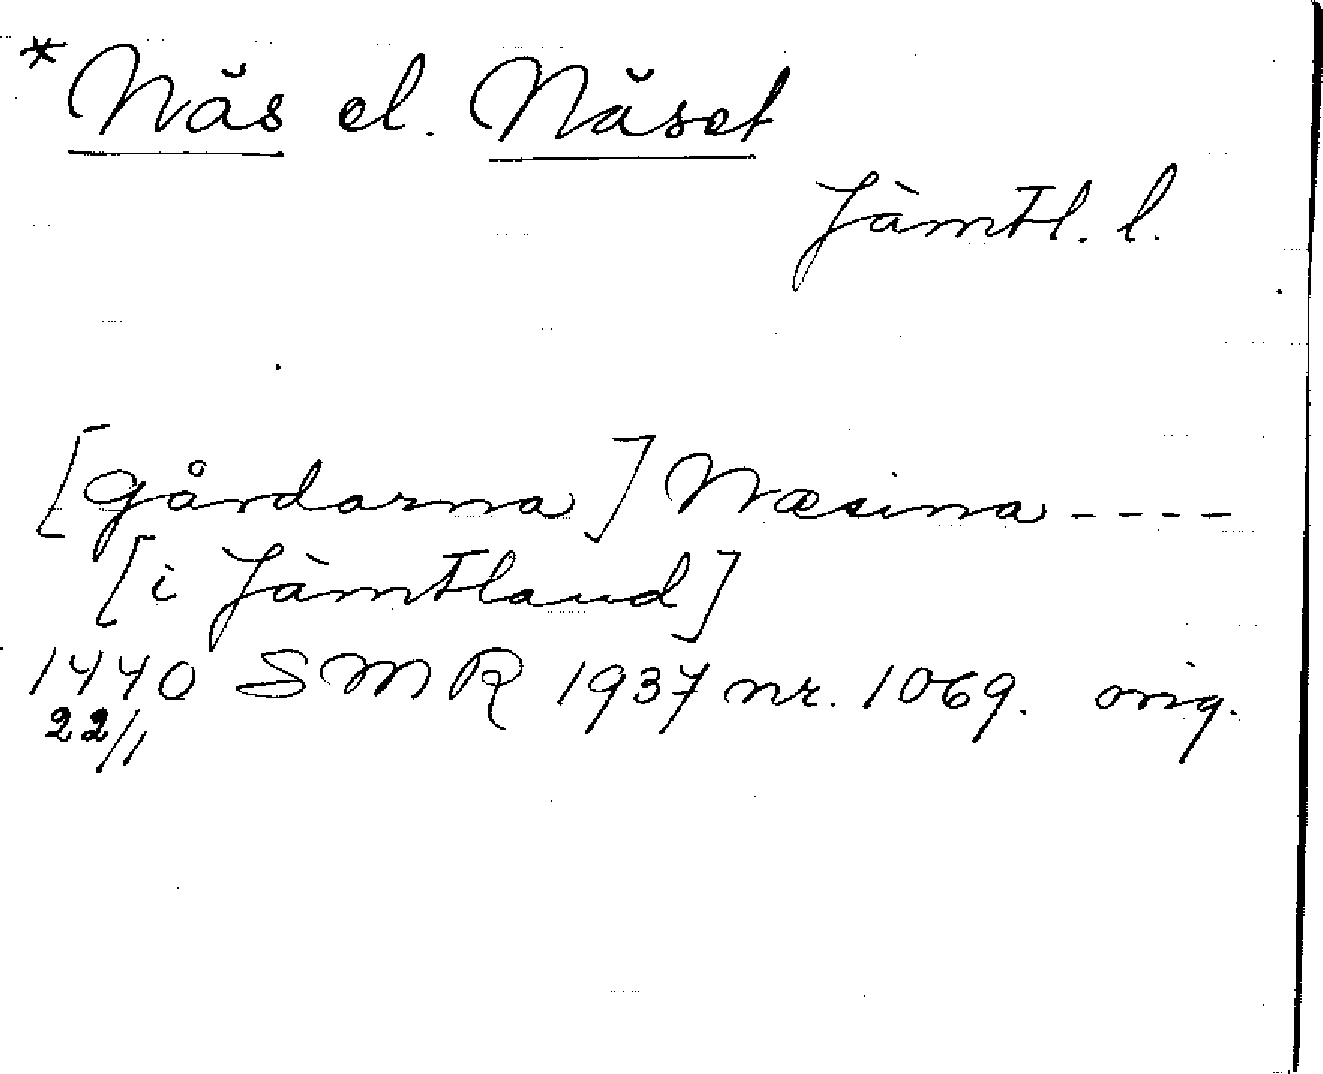 *Näs el. Näset
Jämtl. l.
[gårdarna] Næsina ----
[i Jämtland]
1440 SMR 1937 nr. 1069. orig.
22/1